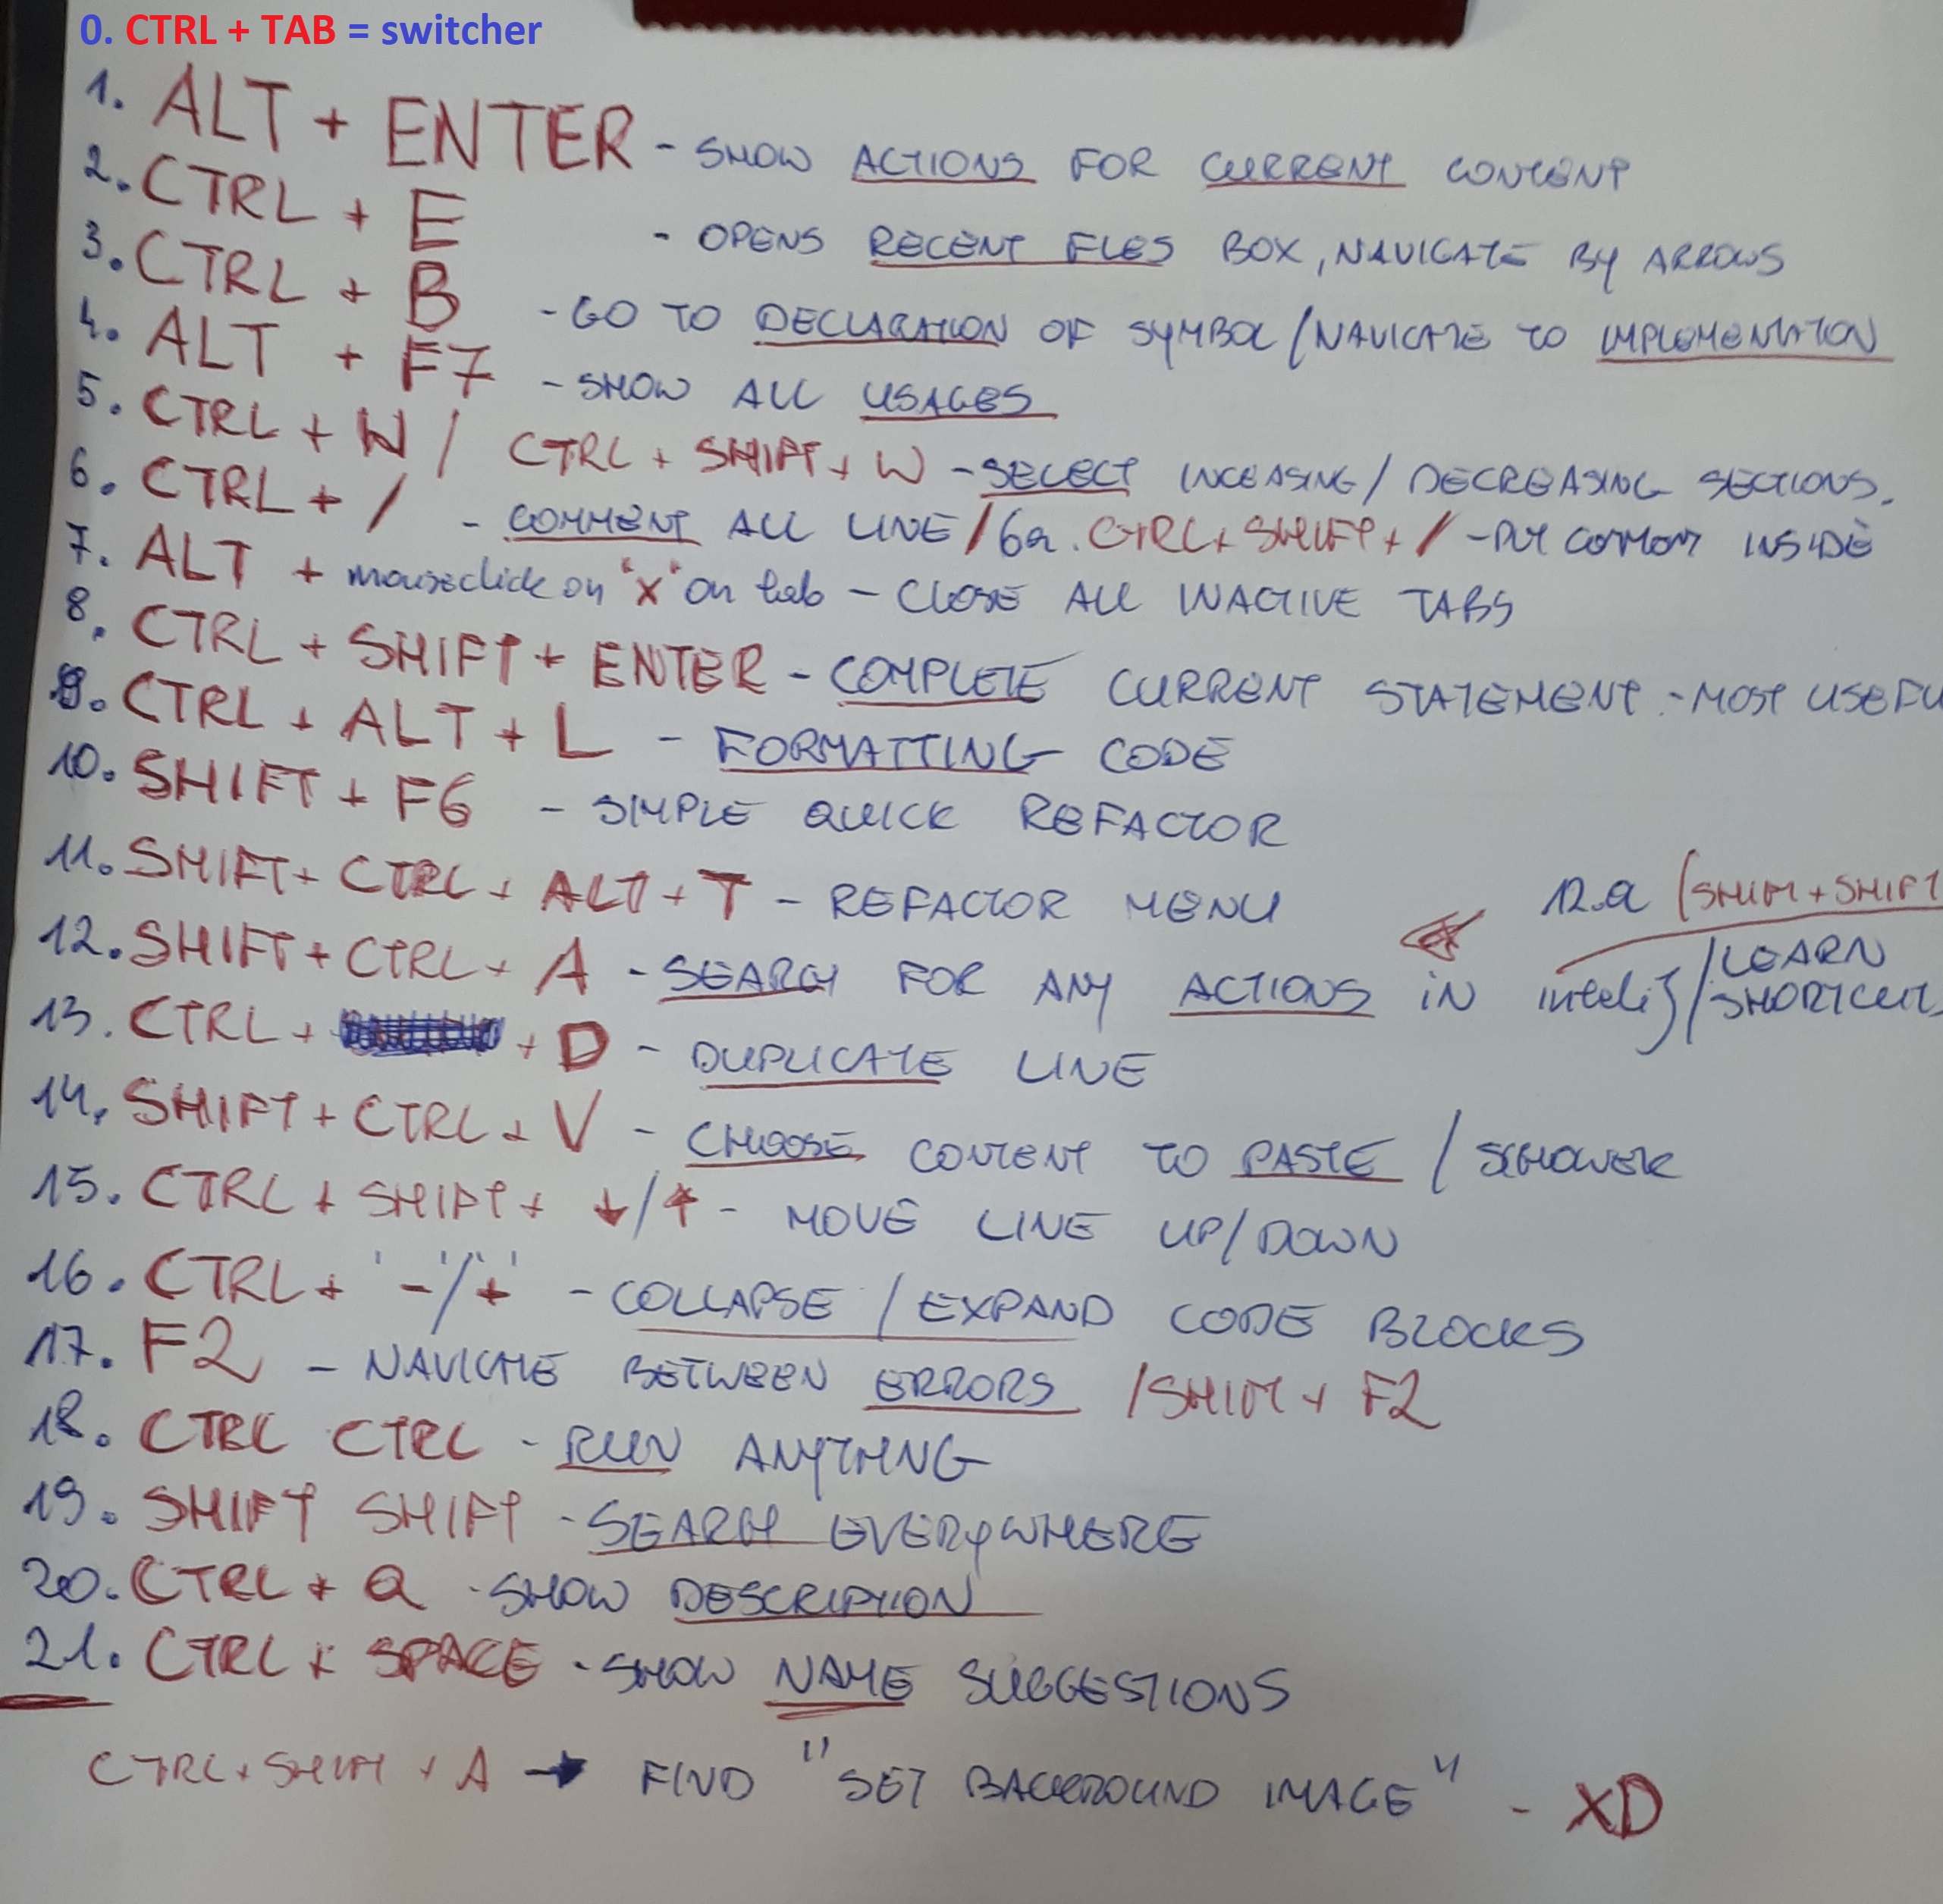 0. CTRL + TAB = switcher
1. ALT + ENTER - SHOW ACTIONS FOR CURRENT CONTENT
2. CTRL + E - OPENS RECENT FILES BOX, NAVIGATE BY ARROWS
3. CTRL + B - GO TO DECLARATION OF SYMBOL / NAVIGATE TO IMPLEMENTATION
4. ALT + F7 - SHOW ALL USAGES
5. CTRL + W / CTRL + SHIFT + W - SELECT INCEASING / DECREASING SECTIONS.
6. CTRL + / - COMMENT ALL LINE / 6a. CTRL + SHIFT + / - PUT INSIDE
7. ALT + mouseclick on "x" on tab - CLOSE ALL INACTIVE TABS
8. CTRL + SHIFT + ENTER - COMPLETE CURRENT STATEMENT - MOST USEFU
9. CTRL + ALT + L - FORMATTING CODE
10. SHIFT + F6 - SIMPLE QUICK REFACTOR
11. SHIFT + CTRL + ALT + T - REFACTOR MENU
12.a (SHIFT + SHIFT
12. SHIFT + CTRL + A - SEARCH FOR ANY ACTIONS IN intelij / LEARN SHORTCUT
13. CTRL + + D - DUPLICATE LINE
14. SHIFT + CTRL + V - CHOOSE CONTENT TO PASTE / SCHOWEK
15. CTRL + SHIFT + ↓/↑ - MOVE LINE UP/DOWN
16. CTRL + '-'/'+' - COLLAPSE / EXPAND CODE BLOCKS
17. F2 - NAVIGATE BETWEEN ERRORS / SHIFT + F2
18. CTRL CTRL - RUN ANYTHING
19. SHIFT SHIFT - SEARCH EVERYWHERE
20. CTRL + Q - SHOW DESCRIPTION
21. CTRL + SPACE - SHOW NAME SUGGESTIONS
CTRL + SHIFT + A → FIND "SET BACKGROUND IMAGE" - XD